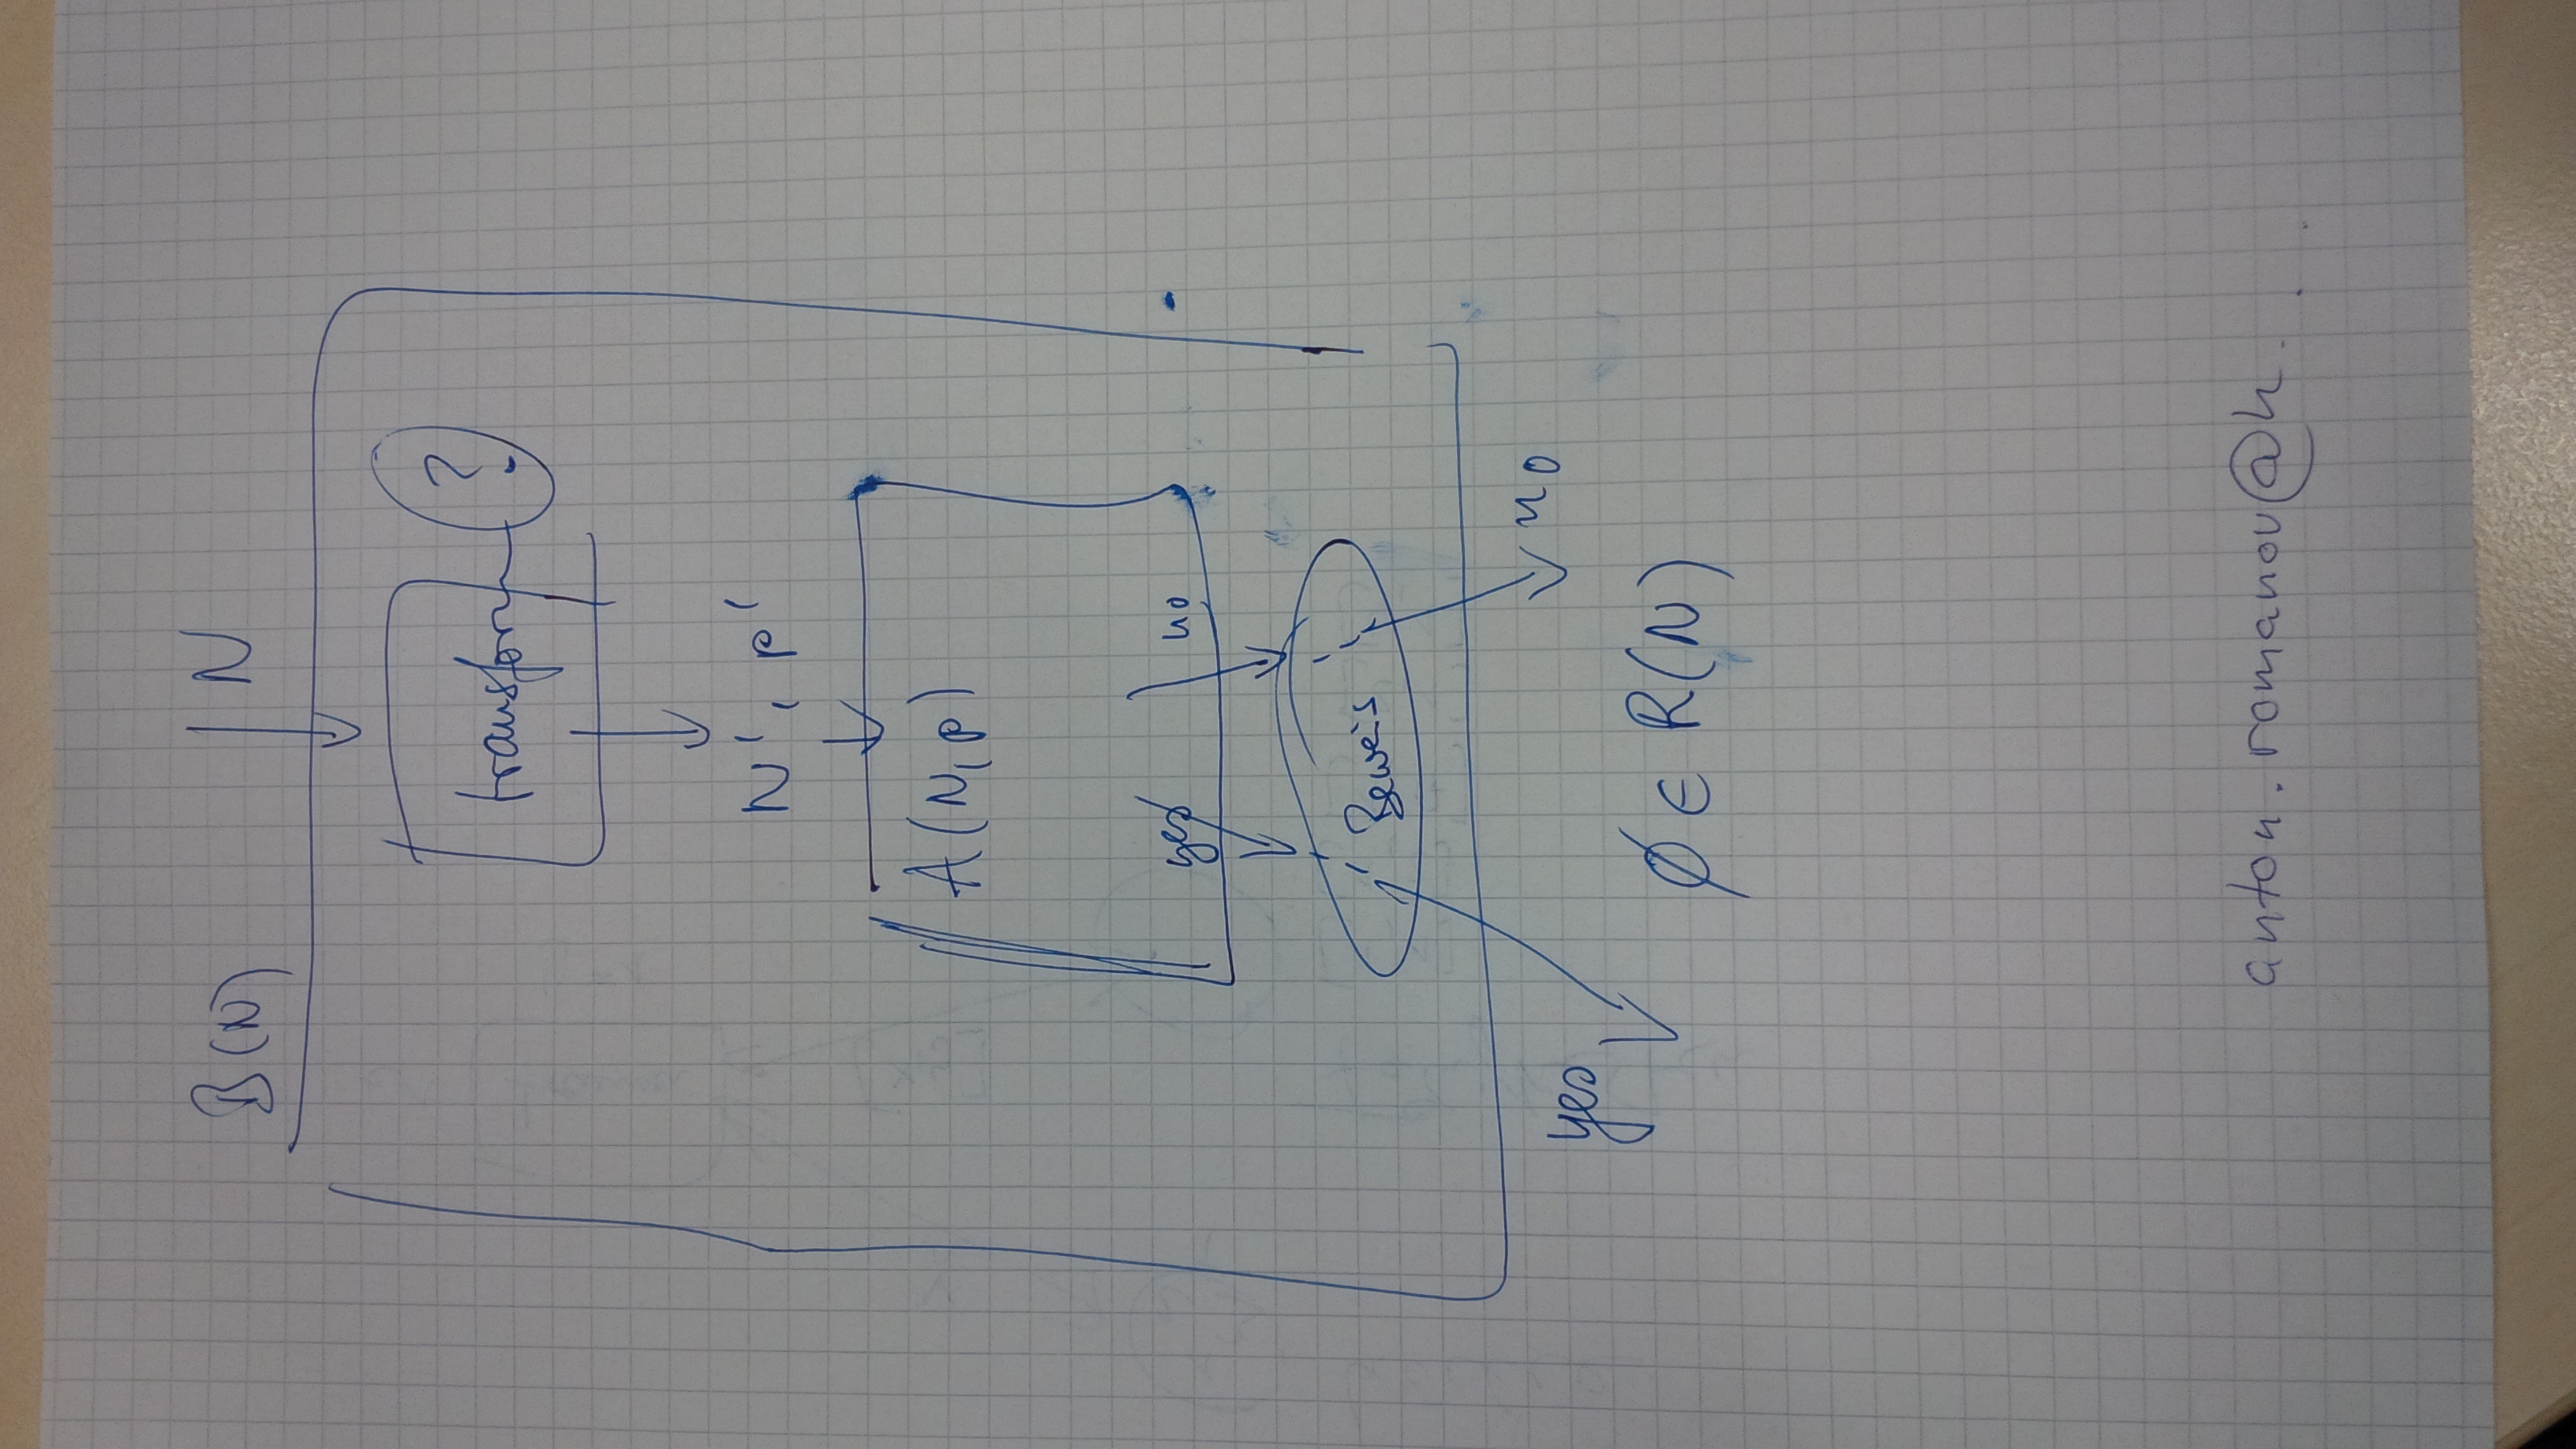 B(N)
N
transform
?
N', p'
A(N, p)
yes
no
Beweis
yes
no
∅ ∈ R(N)
anton.romanov@h...